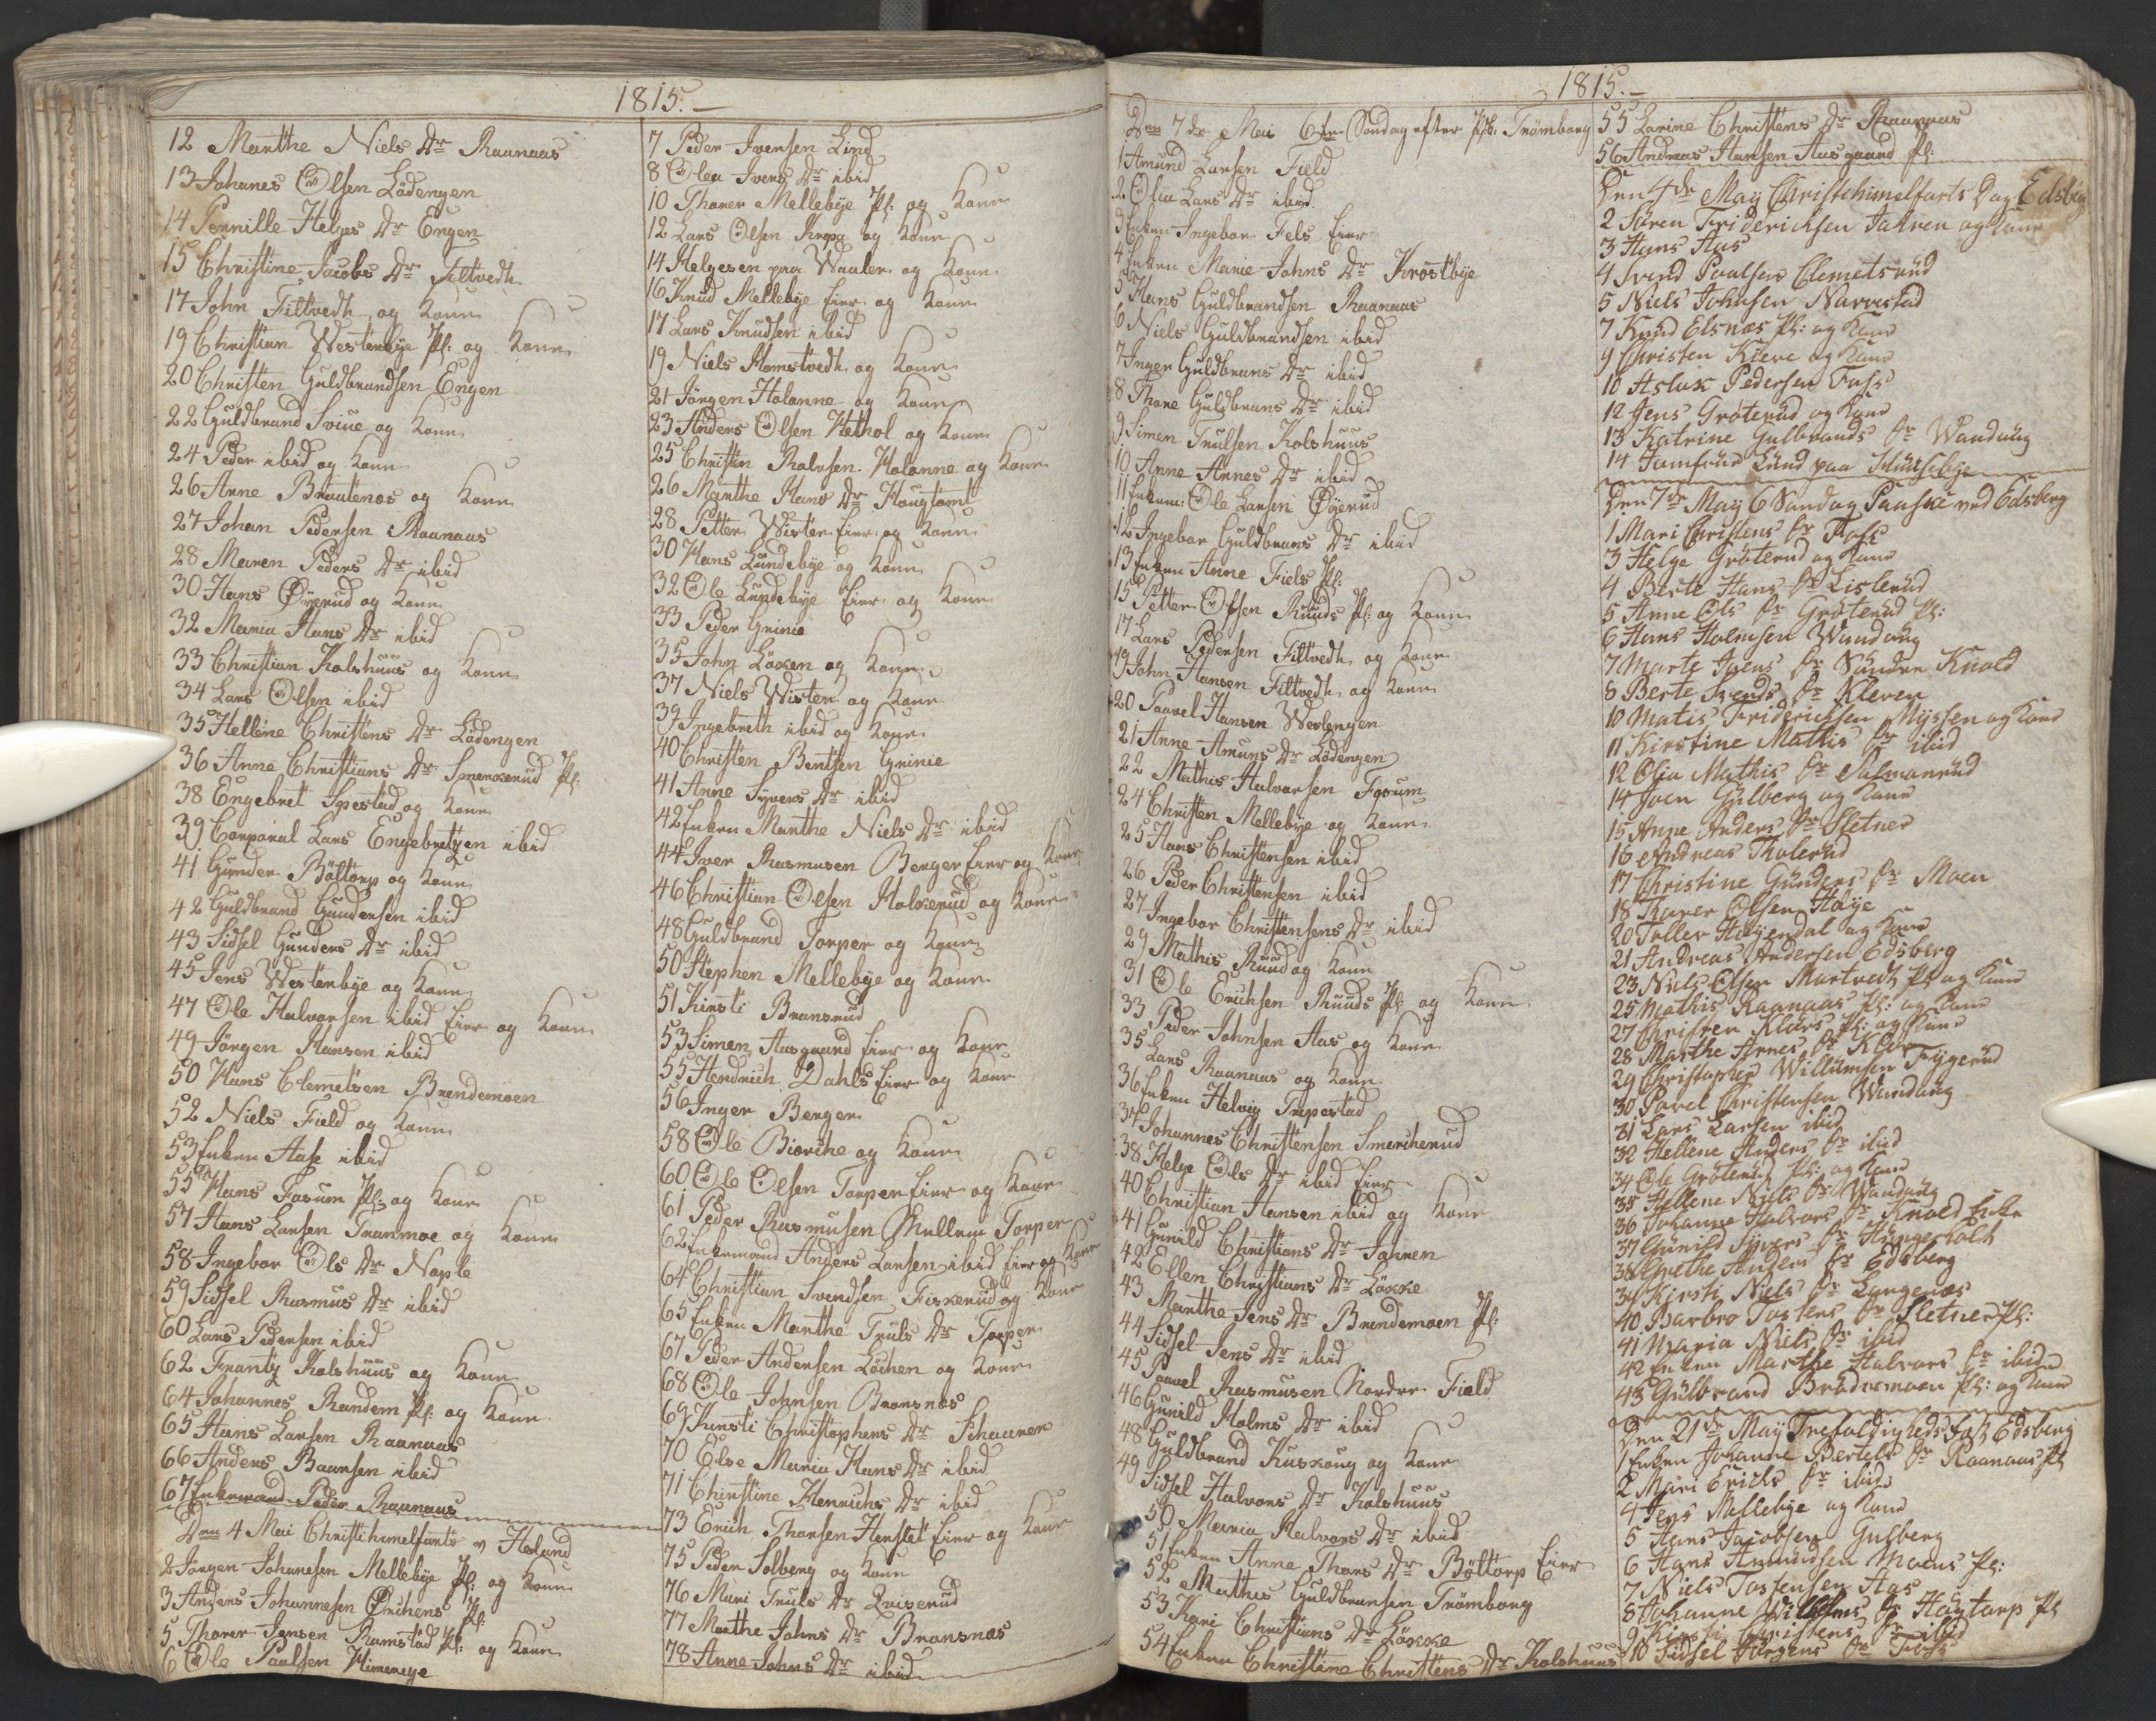 1815.
12 Marthe Niels Dr Raanaas
13 Johanes Olsen Lödengen
14 Pernille Helges Dr Engen
15 Christine Jacobs Dr Filtvedt
17 John Filtvedt og Kone
19 Christian Westenbye Pl: og Kone
20 Christen Guldbrandsen Engen
22 Guldbrand Svine og Kone
24 Peder ibid og Kone
26 Arne Braatenæs og Kone
27 Johan Pedersen Raanaas
28 Maren Peders Dr ibid
30 Hans Öÿerud og Kone
32 Maria Hans Dr ibid
33 Christian Kolshuus og Kone
34 Lars Olsen ibid
35 Hellene Christens Dr Lödengen
36 Anne Christians Dr Smerkerud Pl:
38 Engebret Spestad og Kone
39 Corporal Lars Engebretsen ibid
41 Gunder Böltorp og Kone
42 Guldbrand Gundersen ibid
43 Sidsel Gunders Dr ibid
45 Jens Westenbye og Kone
47 Ole Halvorsen ibid Eier og Kone
49 Jörgen Hansen ibid
50 Hans Clemetsen Brendemoen
52 Niels Field og Kone
53 Enken Aase ibid
55 Hans Fosum Pl: og Kone
57 Hans Larsen Tranmoe og Kone
58 Ingebor Ols Dr Næple
59 Sidsel Rasmus Dr ibid
60 Lars Pedersen ibid
62 Frantz Kolshuus og Kone
64 Johannes Randem Pl: og Kone
65 Hans Larsen Raanaas
66 Anders Baarsen ibid
67 Enkemand Peder Raanaas
Den 4 Mai Christihimelfarts v Herland
2 Jörgen Johanesen Mellebye Pl: og Kone
3 Anders Johannesen Örchens Pl:
5 Thorer Jensen Ramstad Pl: og Kone
6 Ole Paulsen Himereye
7 Peder Iversen Lind
8 Olea Ivers Dr ibid
10 Thorer Mellebye Pl: og Kone
12 Lars Olsen Krepa og Kone
14 Helgesen paa Waaler og Kone
16 Knud Mellebye Eier og Kone
17 Lars Knudsen ibid
19 Niels Homstvedt og Kone
21 Jörgen Holanne og Kone
23 Anders Olsen Hethol og Kone
25 Christen Ralvsen Holanne og Kone
26 Marthe Hans Dr Haugtomt
28 Petter Wister Eier og Kone
30 Hans Lundebye og Kone
32 Ole Lundebye Eier og Kone
33 Peder Grinie
35 John Löken og Kone
37 Niels Wister og Kone
39 Ingebreth ibid og Kone
40 Christen Bentsen Grinie
41 Anne Syvers Dr ibid
42 Enken Marthe Niels Dr ibid
44 Iver Rasmusen Berger Eier og Kone
46 Christian Olsen Holkerud og Kone
48 Guldbrand Torper og Kone
50 Stephen Mellebye og Kone
51 Kirsti Bransrud
53 Simen Aasgaard Eier og Kone
55 Hendrich Dahls Eier og Kone
56 Inger Berger
58 Ole Biorche og Kone
60 Ole Olsen Torper Eier og Kone
61 Peder Rasmusen Mellem Torper
62 Enkemand Anders Larsen ibid Eier og Kone
64 Christian Svendsen Fiskerud og Kone
65 Enken Marthe Truls Dr Torper
67 Peder Andersen Löchen og Kone
68 Ole Johnsen Bransnæs
69 Kirsti Christophers Dr Schaaren
70 Else Maria Hans Dr ibid
71 Christine Henrichs Dr ibid
73 Erich Thorsen Herstet Eier og Kone
75 Peder Solberg og Kone
76 Mari Truls Dr Qviserud
77 Marthe Johns Dr Bransnæs
78 Anne Johns Dr ibid
1815.
Den 7de Mai 6te Søndag efter Paask: Trömborg
1 Amund Larsen Field
2 Olia Lars Dr ibid
3 Enken Ingebor Fels Eier
4 Enken Marie Johns Dr Krostbye
5 Hans Guldbrandsen Raanaas
6 Niels Guldbrandsen ibid
7 Inger Guldbrans Dr ibid
8 Thore Guldbrans Dr ibid
9 Simen Trulsen Kolshuus
10 Anne Arnes Dr ibid
11 Enkem: Ole Larsen Öyerud
12 Ingebor Guldbrans Dr ibid
13 Enken Anne Fiels Pl:
15 Petter Olsen Ruuds Pl: og Kone
17 Lars Pedersen Filtvedt og Kone
19 John Hansen Filtvedt og Kone
20 Paavel Hansen Westengen
21 Anne Amuns Dr Lödengen
22 Mathis Halvorsen Fosum
24 Christen Mellebye og Kone
25 Hans Christensen ibid
26 Peder Christensen ibid
27 Ingebor Christensens Dr ibid
29 Mathis Ruud og Kone
31 Ole Erichsen Ruuds Pl: og Kone
33 Peder Johnsen Aas og Kone
35 Lars Raanaas og Kone
36 Enken Helvig Trepestad
37 Johannes Christensen Smercherud
38 Helge Ols Dr ibid Eier
40 Christian Hansen ibid og Kone
41 Gunild Christians Dr Jahren
42 Ellen Christians Dr Lökke
43 Marthe Jens Dr Brendemoen Pl:
44 Sidsel Jens Dr ibid
45 Paavel Rasmusen Nordre Field
46 Gunild Holms Dr ibid
48 Guldbrand Kuskoug og Kone
49 Sidsel Halvors Dr Kolshuus
50 Maria Halvors Dr ibid
51 Enken Anne Thors Dr Böltorp Eier
52 Mathis Guldbransen Trömborg
53 Kari Christians Dr Lökke
54 Enken Christine Christens Dr Kolshuus
55 Larine Christens Dr Raanaas
56 Andreas Hansen Aasgaard Pl:
Den 4de May Christihimelfarts Dag Edsberg
2 Sören Friderichsen Jahren og Kone
3 Hans Aas
4 Svend Paalsen Clemetsrud
5 Niels Johnsen Narvestad
7 Knud Elsnæs Pl: og Kone
9 Christen Kiere og Kone
10 Aslak Pedersen Foss
12 Jens Gröterud og Kone
13 Katrine Gulbrands Dr Wandung
14 Jomfrue Lund paa Huusebye
Den 7de May 6 Søndag Paaske ved Edsberg
1 Mari Christens Dr Foss
3 Helge Gröterud og Kone
4 Berte Hans Dr Lislerud
5 Anne Ols Dr Gröterud Pl:
6 Hans Holmsen Wandung
7 Marte Joens Dr Søndre Knold
8 Berte Svends Dr Kleven
10 Matis Friderichsen Myssen og Kone
11 Kirstine Mathis Dr ibid
12 Olia Mathis Dr Salmonrud
14 Joen Gulberg og Kone
15 Anne Anders Dr Sletner
16 Andreas Tholerud
17 Christine Gunders Dr Moen
18 Torer Olsen Høye
20 Toller Høyendal og Kone
21 Andreas Andersen Edsberg
23 Niels Olsen Martvedt Pl: og Kone
25 Mathis Raanaas Pl: og Kone
27 Christen Klavs Pl: og Kone
28 Marthe Arnes Dr Klar
29 Christopher Willumsen Frygerud
30 Pavel Christensen Wandung
31 Lars Larsen ibid
32 Hellene Anders Dr ibid
34 Ole Gröterud Pl: og Kone
35 Hellene Niels Dr Wandung
36 Johanne Halvors Dr Knold Enke
37 Gunild Syvers Dr Hungerholt
38 Grethe Anders Dr Edsberg
39 Kirsti Niels Dr Langenæs
40 Barbro Tostens Dr Sletner Pl:
41 Maria Niels Dr ibid
42 Enken Marthe Halvors Dr ibid
43 Gulbrand Brødremoen Pl: og Kone
Den 21de May Trefoldigheds Fest Edsberg
1 Enken Johanne Bertels Dr Raanaas Pl
2 Mari Erichs Dr ibid
4 Jens Mellebye og Kone
5 Hans Jacobsen Gulberg
6 Hans Amundsen Moens Pl:
7 Niels Tostensen Aas
8 Johanne Willums Dr Haugtorp Pl
9 Kirsti Christens Dr ibid
10 Sidsel Jörgens Dr Foss